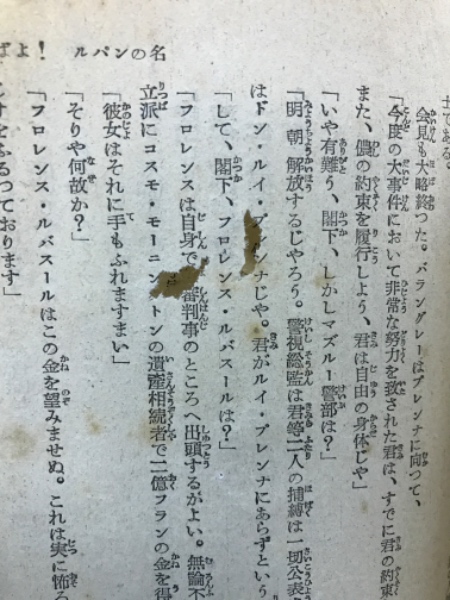 ルパンの名
ばよ！
士である。
会見も大略終つた。バラングレーはプレンナに向つて、
「今度の大事件において非常な努力を致された君は、すでに君の約束
また、僕の約束を履行しよう、君は自由の身体じや」
「いや有難う、閣下、しかしマズルー警部は？」
「明朝、解放するじやろう。警視総監は君等二人の捕縛は一切公表
はドン・ルイ・プレンナじや。君がルイ・プレンナにあらずという
「して、閣下、フロレンス・ルバスールは？」
「フロレンスは自身で審判事のところへ出頭するがよい。無論不
立派にコスモ・モーニントンの遺産相続者で二億フランの金を得
「彼女はそれに手もふれますまい」
「そりや何故か？」
「フロレンス・ルバスールはこの金を望みませぬ。これは実に怖ろ
をふるつております」